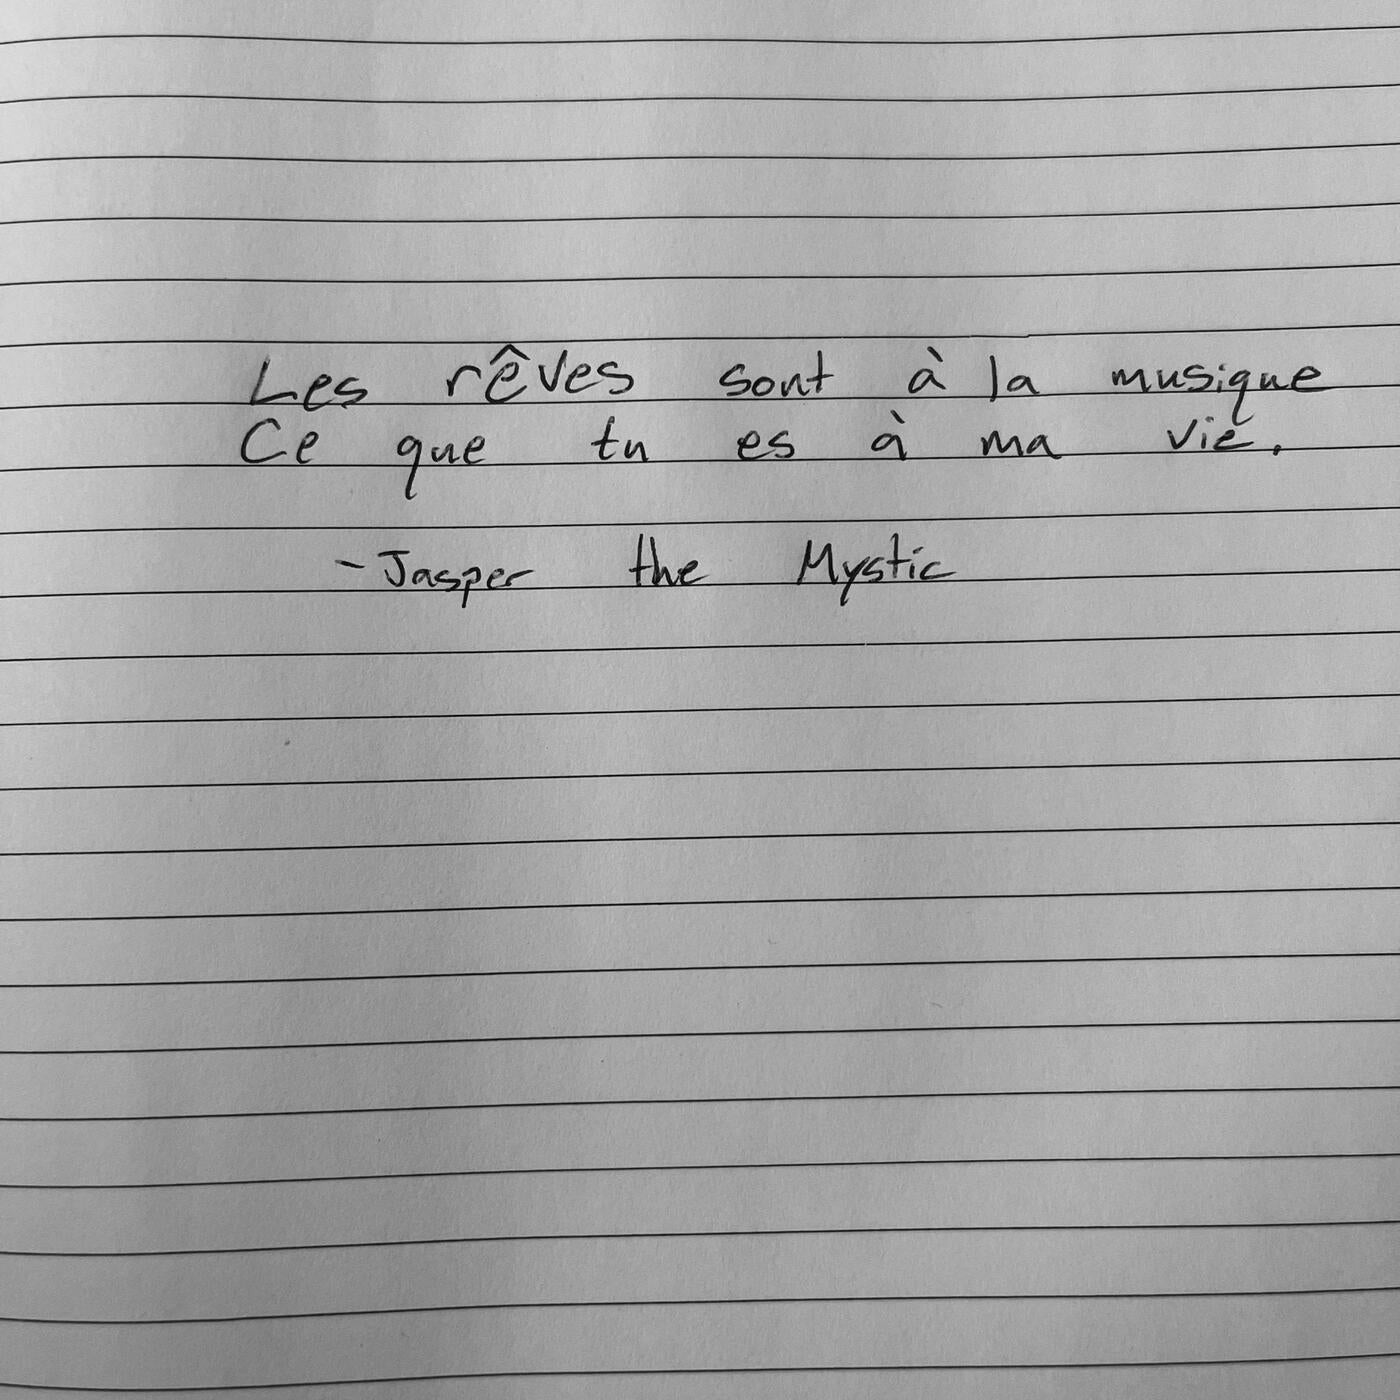 Les rêves sont à la musique
Ce que tu es à ma vie.
- Jasper the Mystic